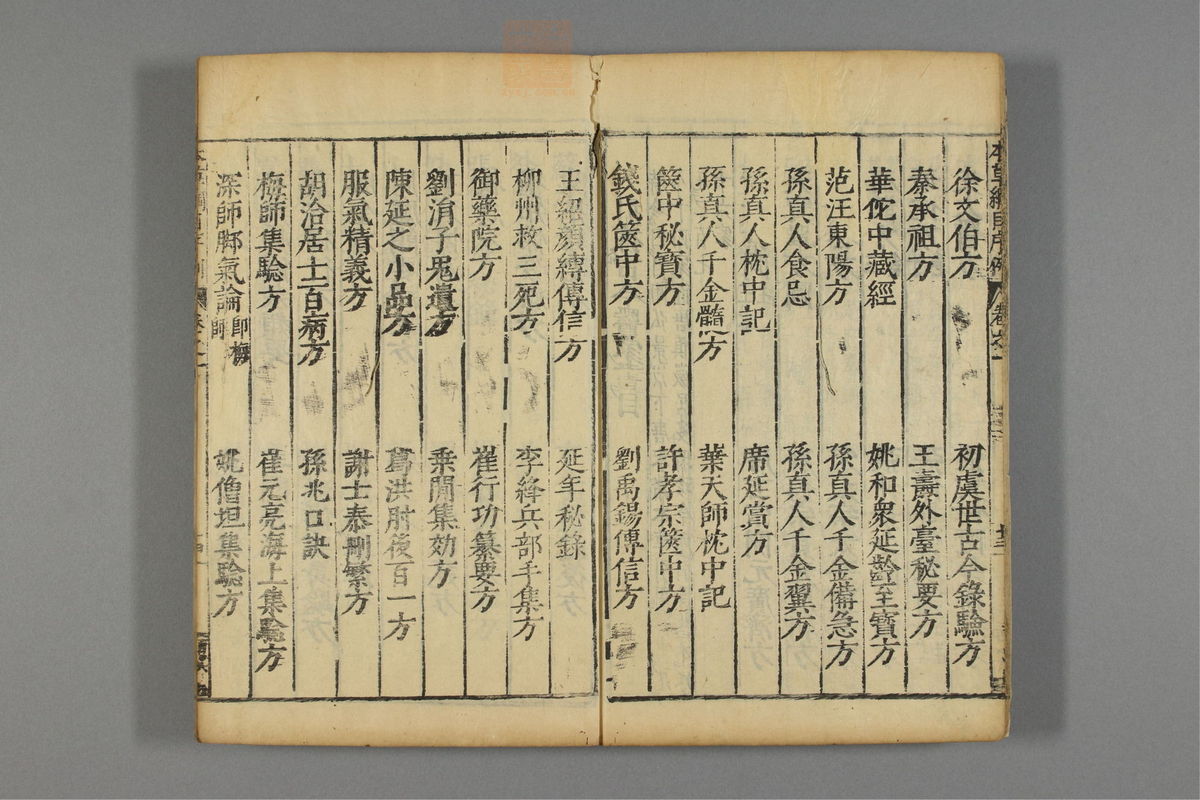 徐文伯方 初虞世古今錄驗方
秦承祖方 王壽外臺秘要方
華佗中藏經 姚和衆延齡至寶方
范汪東陽方 孫真人千金備急方
孫真人食忌 孫真人千金翼方
孫真人枕中記 席延賞方
孫真人千金髓方 葉天師枕中記
篋中秘寶方 許孝宗篋中方
錢氏篋中方 劉禹錫傳信方
王紹顏續傳信方 延年秘錄
柳州救三死方 李絳兵部手集方
御藥院方 崔行功纂要方
劉涓子鬼遺方 乗閒集効方
陳延之小品方 葛洪肘後百一方
服氣精義方 謝士泰刪繁方
胡洽居士百病方 孫兆口訣
梅師集驗方 崔元亮海上集驗方
深師脚氣論即梅師 姚僧坦集驗方